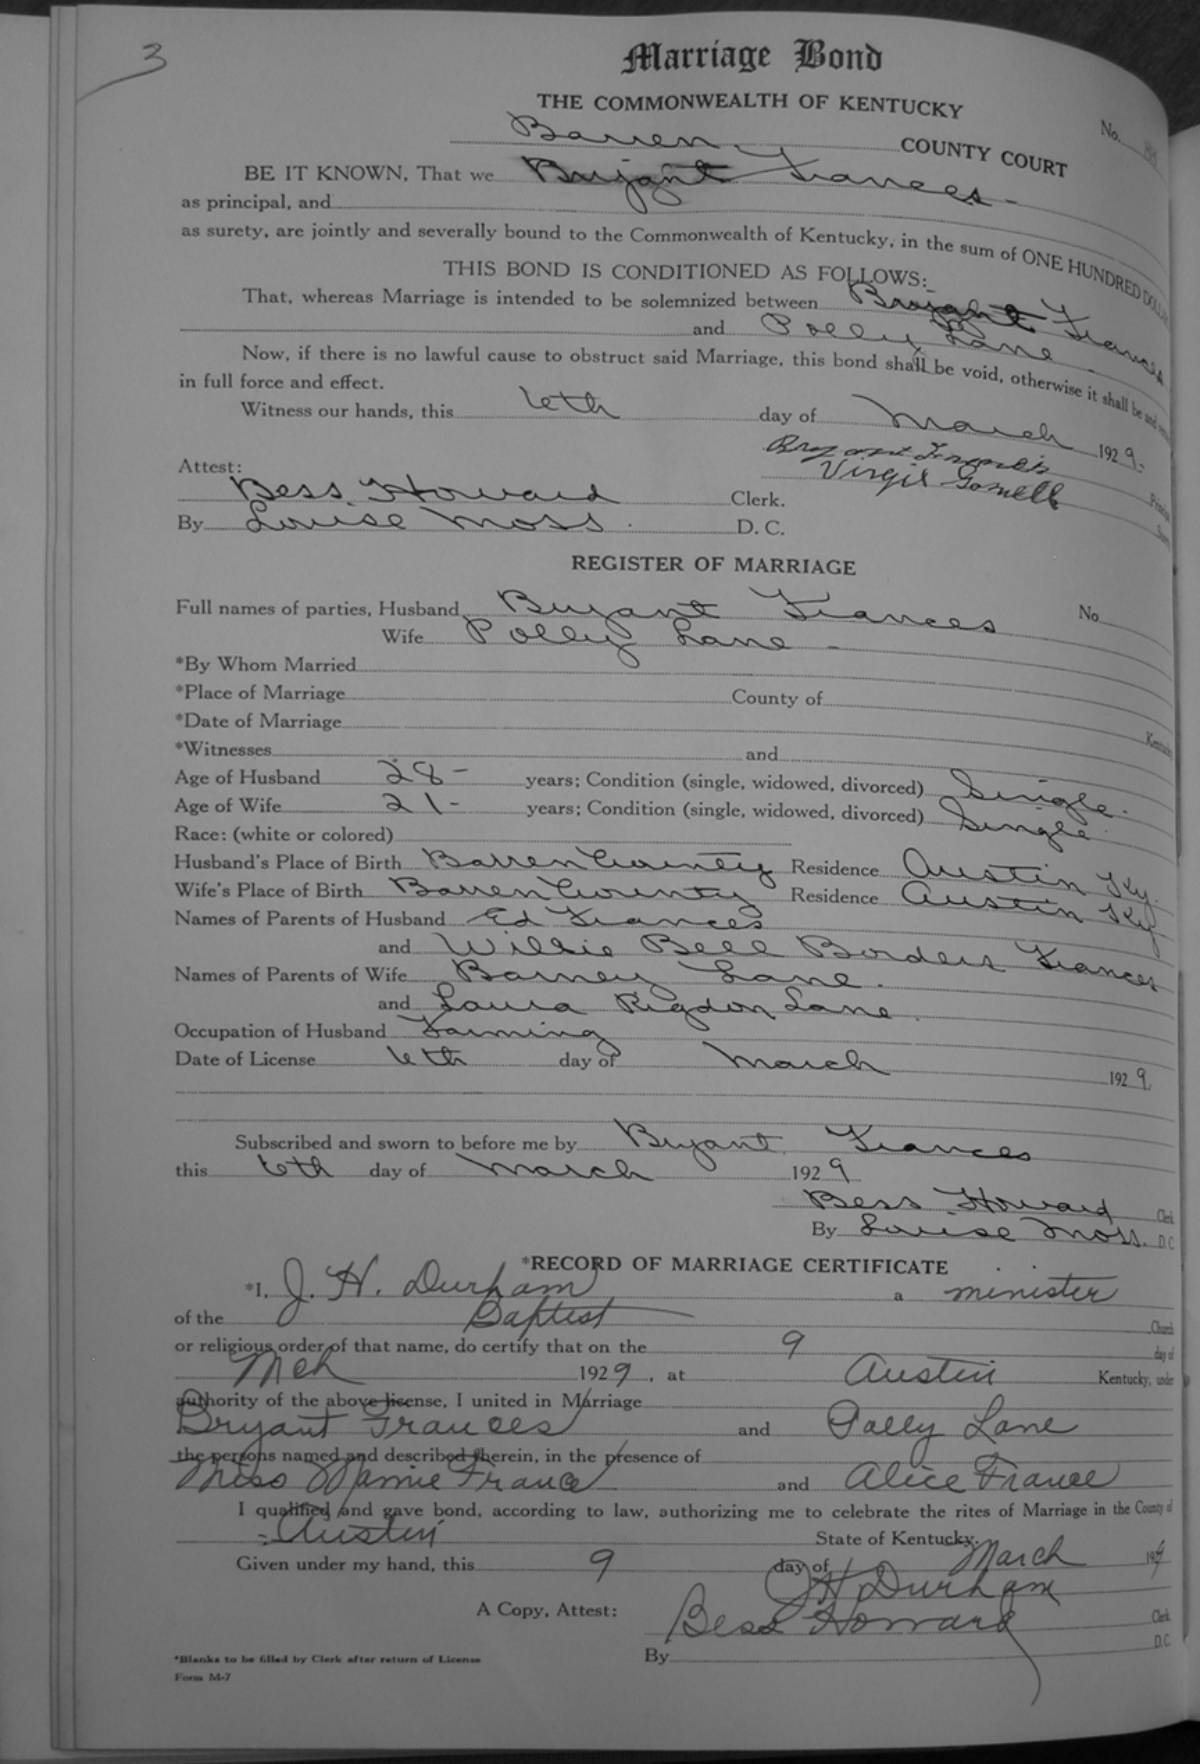 3
Marriage Bond
THE COMMONWEALTH OF KENTUCKY
No.
Barren COUNTY COURT
BE IT KNOWN, That we Bryant Frances
as principal, and
as surety, are jointly and severally bound to the Commonwealth of Kentucky, in the sum of ONE HUNDRED DOLLA
THIS BOND IS CONDITIONED AS FOLLOWS:
That, whereas Marriage is intended to be solemnized between Bryant Frances
and Polly Lane
Now, if there is no lawful cause to obstruct said Marriage, this bond shall be void, otherwise it shall be and
in full force and effect.
Witness our hands, this 6th day of March 1929.
Virgil
Attest:
Bess Howard Clerk.
By Louise Moss. D. C.
REGISTER OF MARRIAGE
Full names of parties, Husband Bryant Frances No
Wife Polly Lane
*By Whom Married
*Place of Marriage County of
*Date of Marriage Kentucky
*Witnesses and
Age of Husband 28 - years; Condition (single, widowed, divorced) Single.
Age of Wife 21 - years; Condition (single, widowed, divorced) Single.
Race: (white or colored)
Husband's Place of Birth Barren County Residence Austin Ky.
Wife's Place of Birth Barren County Residence Austin Ky
Names of Parents of Husband Ed Frances
and Willie Bell Borders Frances
Names of Parents of Wife Barney Lane.
and Laura Rigdon Lane.
Occupation of Husband Farming
Date of License 6th day of March 1929
Subscribed and sworn to before me by Bryant Frances
this 6th day of March 1929
Bess Howard Clerk
By Louise Moss. D C
*RECORD OF MARRIAGE CERTIFICATE
*I, J. H. Durham a minister
of the Baptist Church
or religious order of that name, do certify that on the 9 day of
Mch 1929, at Austin Kentucky, under
authority of the above license, I united in Marriage
Bryant Frances and Polly Lane
the persons named and described therein, in the presence of
Miss Mamie France and Alice France
I qualified and gave bond, according to law, authorizing me to celebrate the rites of Marriage in the County of
Austin State of Kentucky.
Given under my hand, this 9 day of March 19
J H Durham
A Copy, Attest: Bess Howard Clerk
By D.C.
*Blanks to be filled by Clerk after return of License
Form M-7